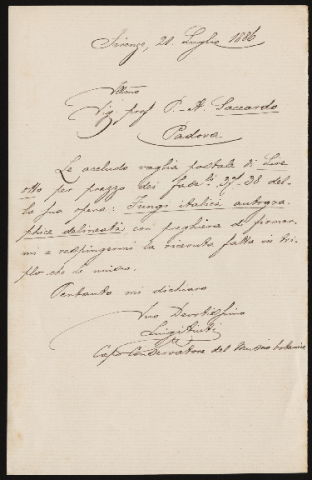 Firenze, 20 Luglio 1886
Illmo
Sig prof P. A. Saccardo
Padova
Le accludo vaglia postale di Lire
otto per prezzo dei fascli 37-38 del-
la sua opera: Fungi italici autogra-
phice delineati con preghiera di firmar-
mi e respingermi la ricevuta fatta in tri-
plo che le unisco.
Pertanto mi dichiaro
Suo Devotissimo
Luigi
Capo Conservatore del Museo botanico